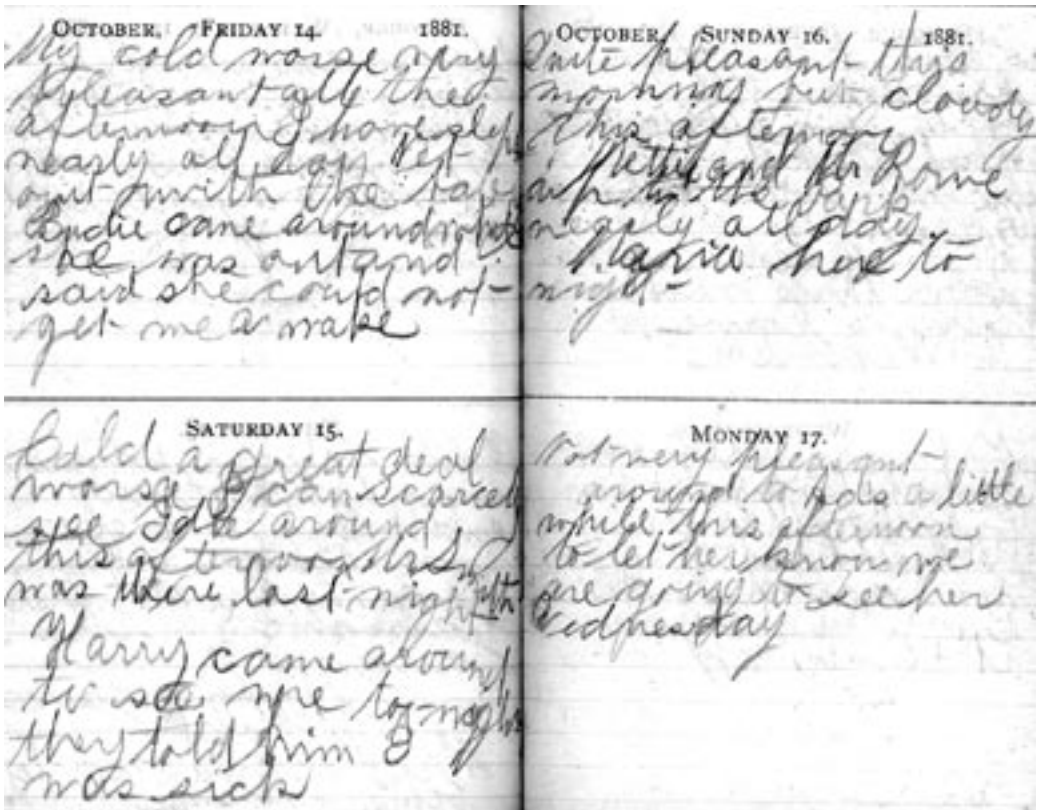 OCTOBER, FRIDAY 14. 1881.
My cold worse very
pleasant all the
afternoon I have slept
nearly all day
out with the
came around
she was out and
said she could not
get me a
SATURDAY 15.
Cold a great deal
worse I can scarcely
see Ida around
this afternoon Mrs
was there last night
Harry came around
to see me to-night
they told him I
was sick
OCTOBER, SUNDAY 16. 1881.
Quite pleasant this
morning but cloudy
this afternoon
Nettie and Mr Rowe
up to the park
nearly all day
here to
night
MONDAY 17.
Not very pleasant
around to Ida's a little
while this afternoon
to let her know we
are going to see her
Wednesday